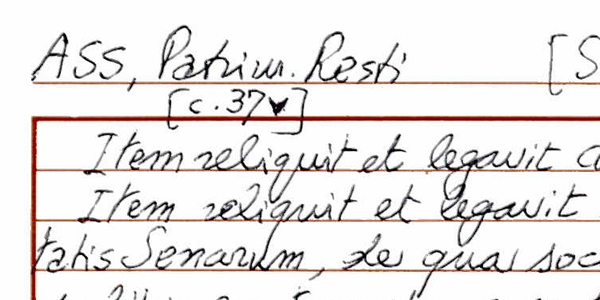 ASS, Patrim. Resti [S
[c. 37v]
Item reliquit et legavit
Item reliquit et legavit
tatis Senarum, de qua soc